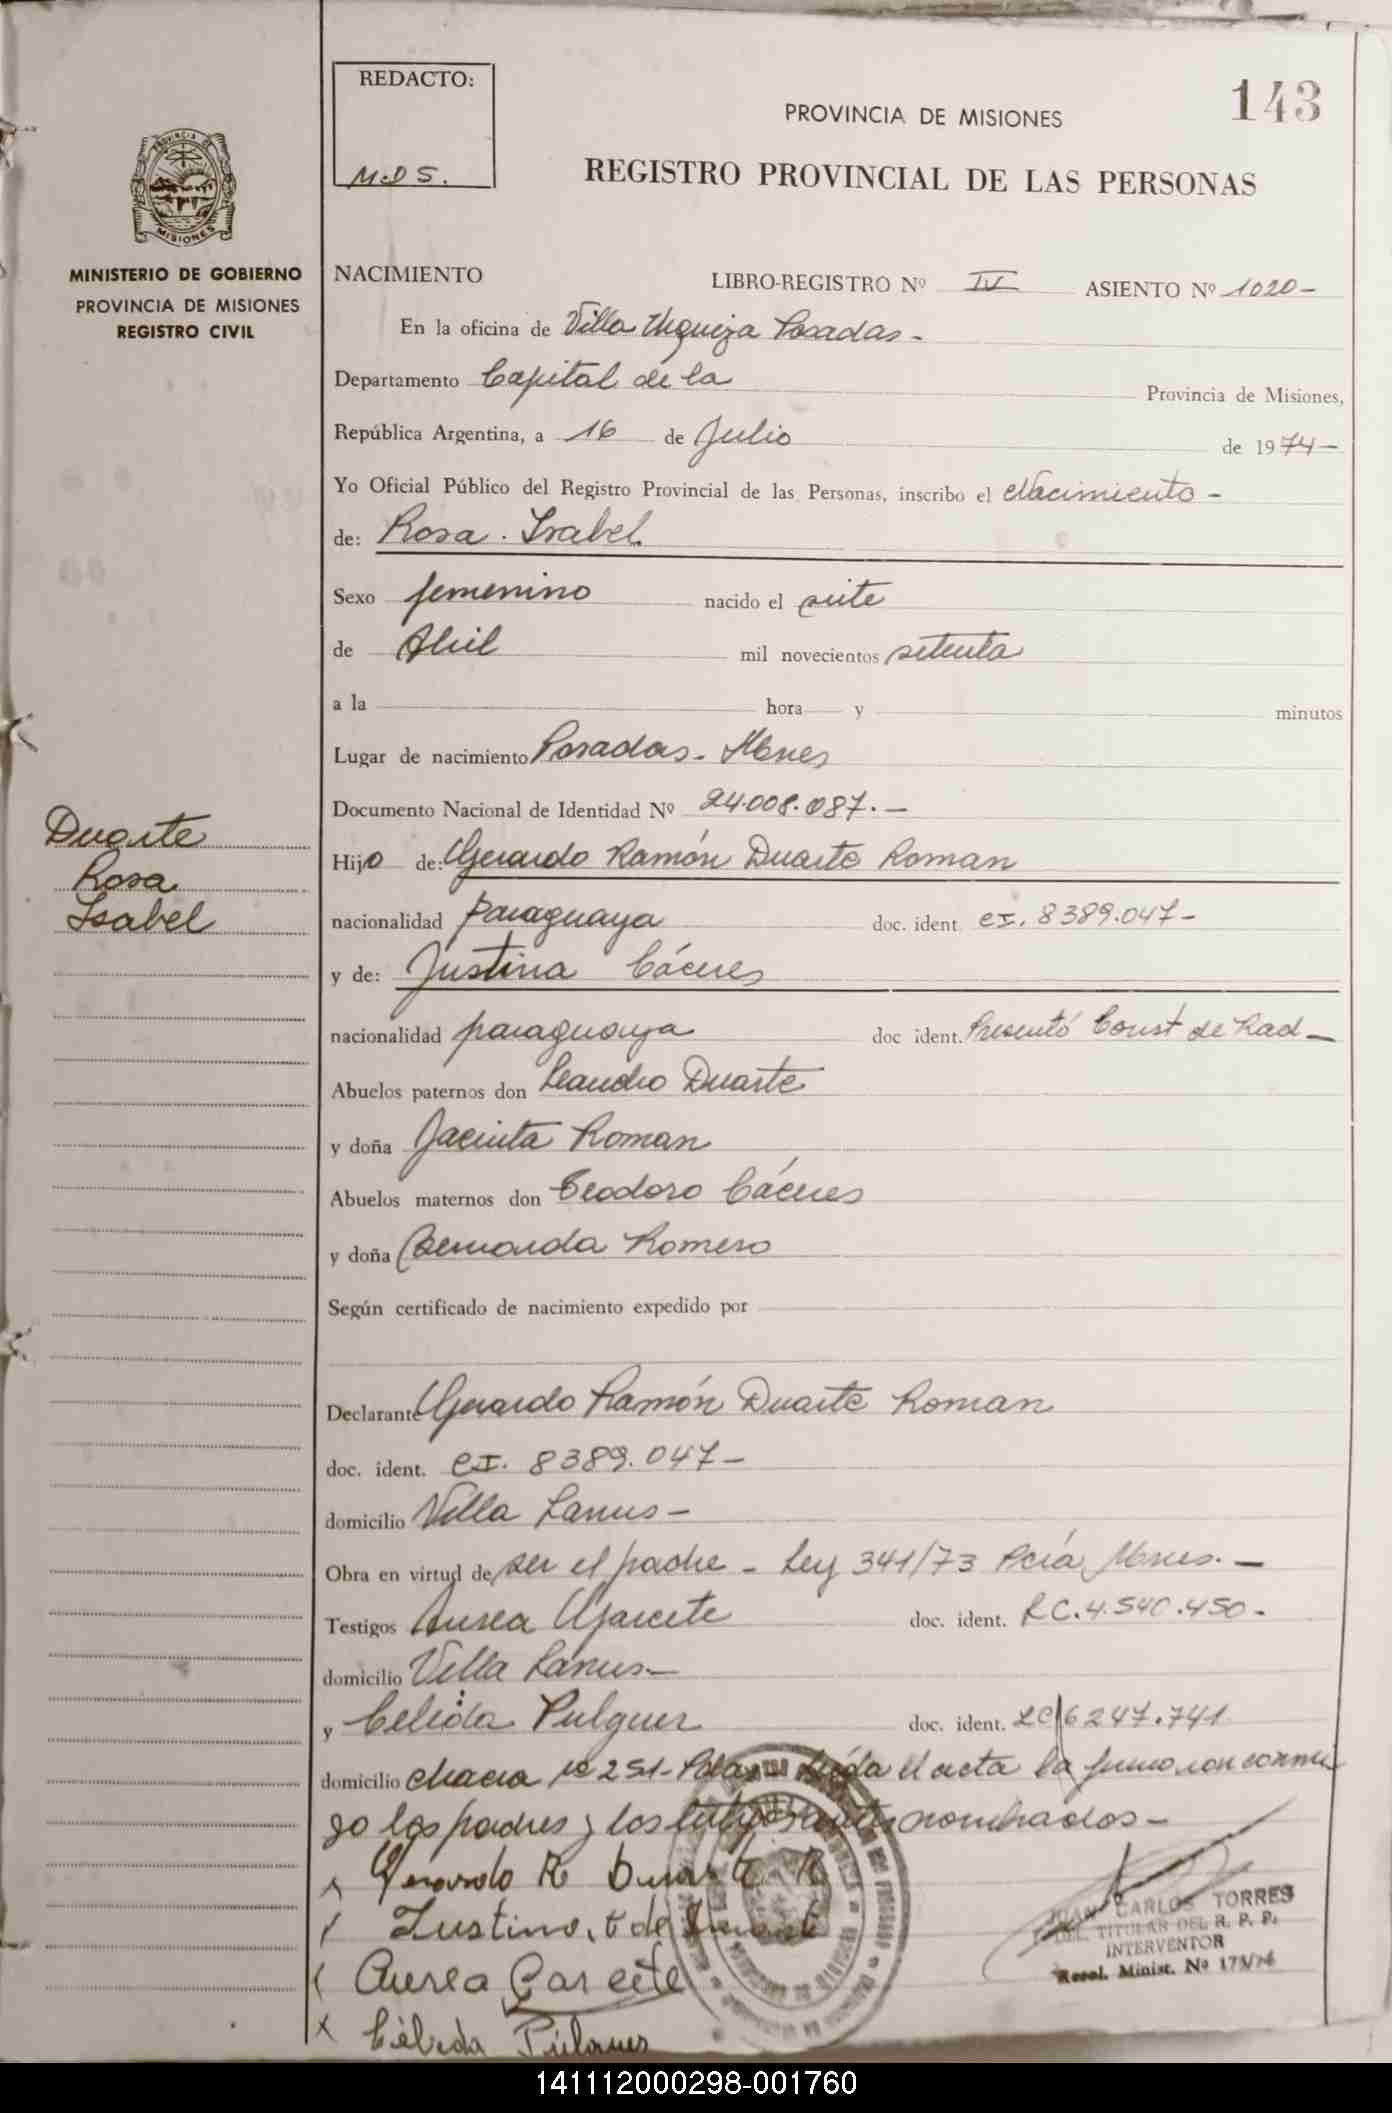 REDACTO:
M.D S.
143
PROVINCIA DE MISIONES
REGISTRO PROVINCIAL DE LAS PERSONAS
PROVINCIA DE
MISIONES
MINISTERIO DE GOBIERNO
PROVINCIA DE MISIONES
REGISTRO CIVIL
NACIMIENTO LIBRO-REGISTRO Nº IV ASIENTO Nº 1020-
En la oficina de Villa Urquiza Posadas-
Departamento Capital de la Provincia de Misiones,
República Argentina, a 16 de Julio de 1974-
Yo Oficial Público del Registro Provincial de las Personas, inscribo el Nacimiento-
de: Rosa. Isabel
Sexo femenino nacido el siete
de Abril mil novecientos setenta
a la hora y minutos
Lugar de nacimiento Posadas- Mnes
Documento Nacional de Identidad Nº 24.008.087.-
Duarte
Rosa
Isabel
Hijo de: Gerardo Ramón Duarte Roman
nacionalidad paraguaya doc. ident. CI. 8389.047-
y de: Justina Cáceres
nacionalidad paraguaya doc ident. Presentó Const de Rad-
Abuelos paternos don Leandro Duarte
y doña Jacinta Roman
Abuelos maternos don Teodoro Cáceres
y doña Bernarda Romero
Según certificado de nacimiento expedido por
Declarante Gerardo Ramón Duarte Roman
doc. ident. CI. 8389.047-
domicilio Villa Lanus-
Obra en virtud de ser el padre - Ley 341/73 Pcia Mnes.-
Testigos Aurea Garcete doc. ident. LC.4.540.450-
domicilio Villa Lanus-
y Celida Pulguer doc. ident. LC 6247.741
domicilio chacra Nº 251- Pdas- Leída el acta la firmaron conmi
go los padres y los nombrados-
Gerardo R Duarte R
Justina, C de Duarte
Aurea Garcete
Célida
JUAN CARLOS TORRES
DEL. TITULAR DEL R. P. P.
INTERVENTOR
Resol. Minist. Nº 173/74
141112000298-001760